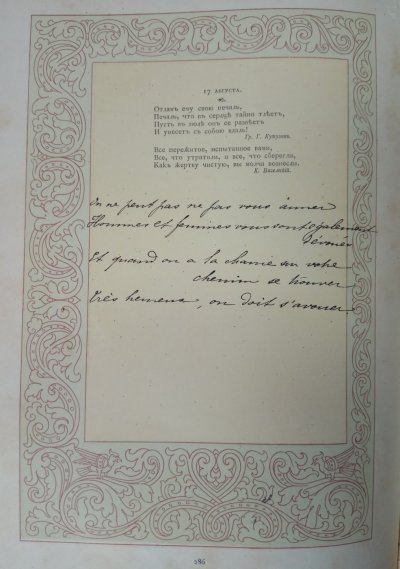 17 АВГУСТА.
Отдамъ ему свою печаль,
Печаль, что въ сердцѣ тайно тлѣетъ,
Пусть въ полѣ онъ ее развѣетъ
И унесетъ съ собою вдаль!
Гр. Г. Кутузовъ.
Все пережитое, испытанное вами,
Все, что утратили, и все, что сберегли,
Какъ жертву чистую, вы молча вознесли.
К. Вяземскій.
On ne peut pas ne pas vous aimer
Hommes et femmes vous sont également
dévoués
Et quand on a la chance sur votre
chemin se trouver
Très heureux, on doit s'avouer
286